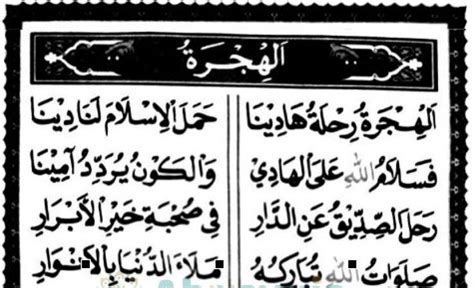 اَلْهِجْرَةُ
اَلْهِجْرَةُ رِحْلَةُ هَادِيْنَا حَمَلَ الْاِسْلَامَ لَنَا دِيْنَا
فَسَلَامُ اللهِ عَلَى الْهَادِيْ وَالْكَوْنُ يُرَدِّدُ آمِيْنَا
رَحَلَ الصِّدِّيْقُ عَنِ الدَّارِ فِي صُحْبَةِ خَيْرِ الْأَبْرَارِ
صَلَوَاتُ اللهِ تُبَارِكُهُ مَلَاءَ الدُّنْيَا بِالْاَنْوَارِ